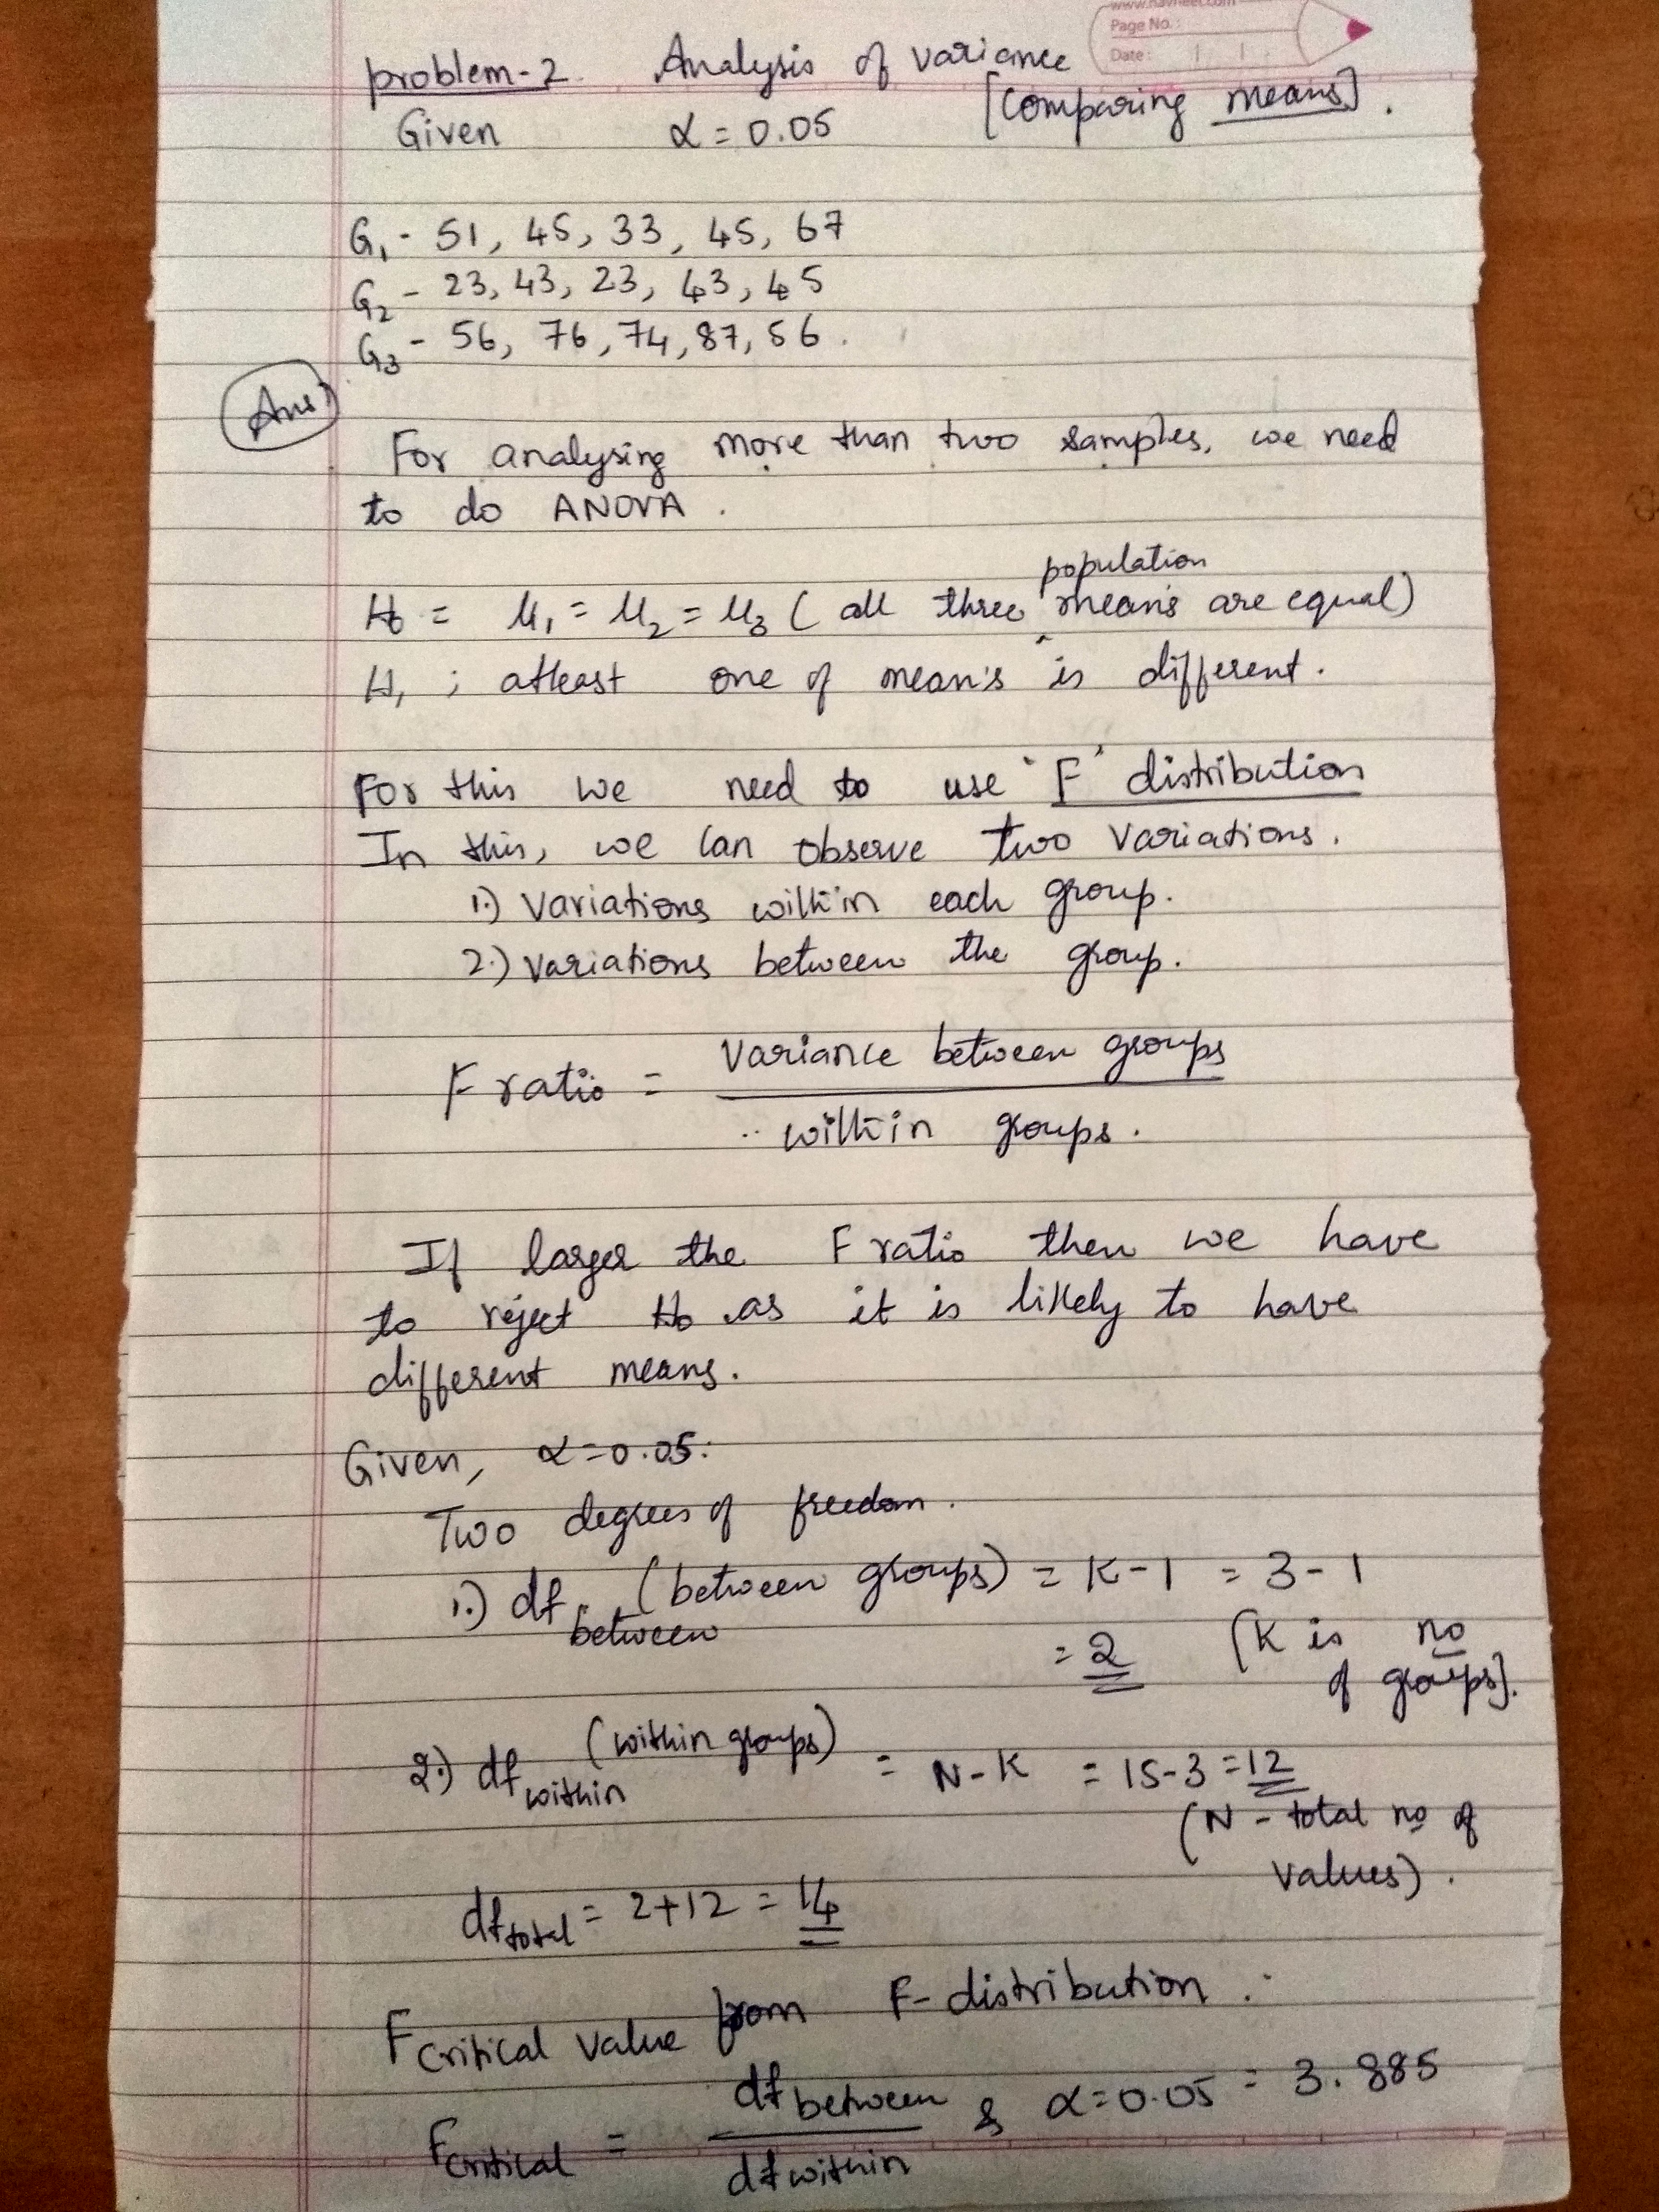 www.navneet.com
Page No.:
Date:
problem-2. Analysis of variance
[Comparing means].
Given α = 0.05
G₁ - 51, 45, 33, 45, 67
G₂ - 23, 43, 23, 43, 45
G₃ - 56, 76, 74, 87, 56.
Ans)
For analysing more than two samples, we need
to do ANOVA.
population
H₀ = μ₁ = μ₂ = μ₃ ( all three means are equal)
H₁ ; atleast one of mean's is different.
For this we need to use 'F' distribution
In this, we can observe two variations.
1.) Variations within each group.
2.) Variations between the group.
F ratio = Variance between groups
.. within groups.
If larger the F ratio then we have
to reject H₀ as it is likely to have
different means.
Given, α = 0.05.
Two degrees of freedom.
1.) df between (between groups) = K - 1 = 3 - 1
= 2 [K is no
of groups].
2.) df within (within groups) = N - K = 15 - 3 = 12
(N - total no of
values).
df total = 2 + 12 = 14
F critical value from F- distribution :
F critical = df between & α = 0.05 = 3.885
df within